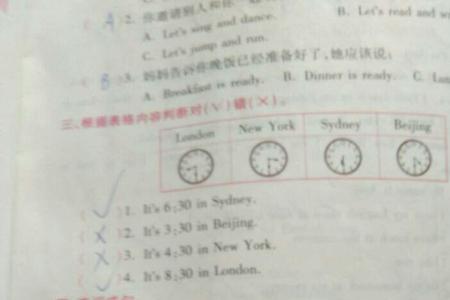 ( A )2. 你邀请别人和你
A. Let's sing and dance.
B. Let's read and
C. Let's jump and run.
( B )3. 妈妈告诉你晚饭已经准备好了,她应该说:
A. Breakfast is ready. B. Dinner is ready. C.
三、根据表格内容判断对(√)错(×)。
London New York Sydney Beijing
( √ )1. It's 6:30 in Sydney.
( X )2. It's 3:30 in Beijing.
( X )3. It's 4:30 in New York.
( √ )4. It's 8:30 in London.